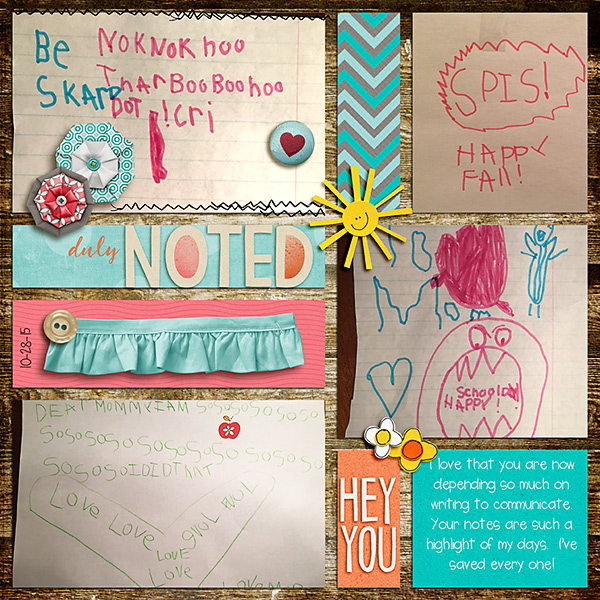 Be
SKARD
NOKNOK hoo
ThAr BooBoohoo
BOT !Cri
SPIS!
HAPPY
FAll!
duly
NOTED
10-28-15
Mom
School
HAPPY!
DEAT MOMMY IAM SOSOSOSOSOSO
SOSOSOSOSOSOSOSOSO
SOSOSOSOIDIDTHAT
Love Love
LOVE
Love
HEY
YOU
I love that you are now
depending so much on
writing to communicate.
Your notes are such a
highlight of my days. I've
saved every one!